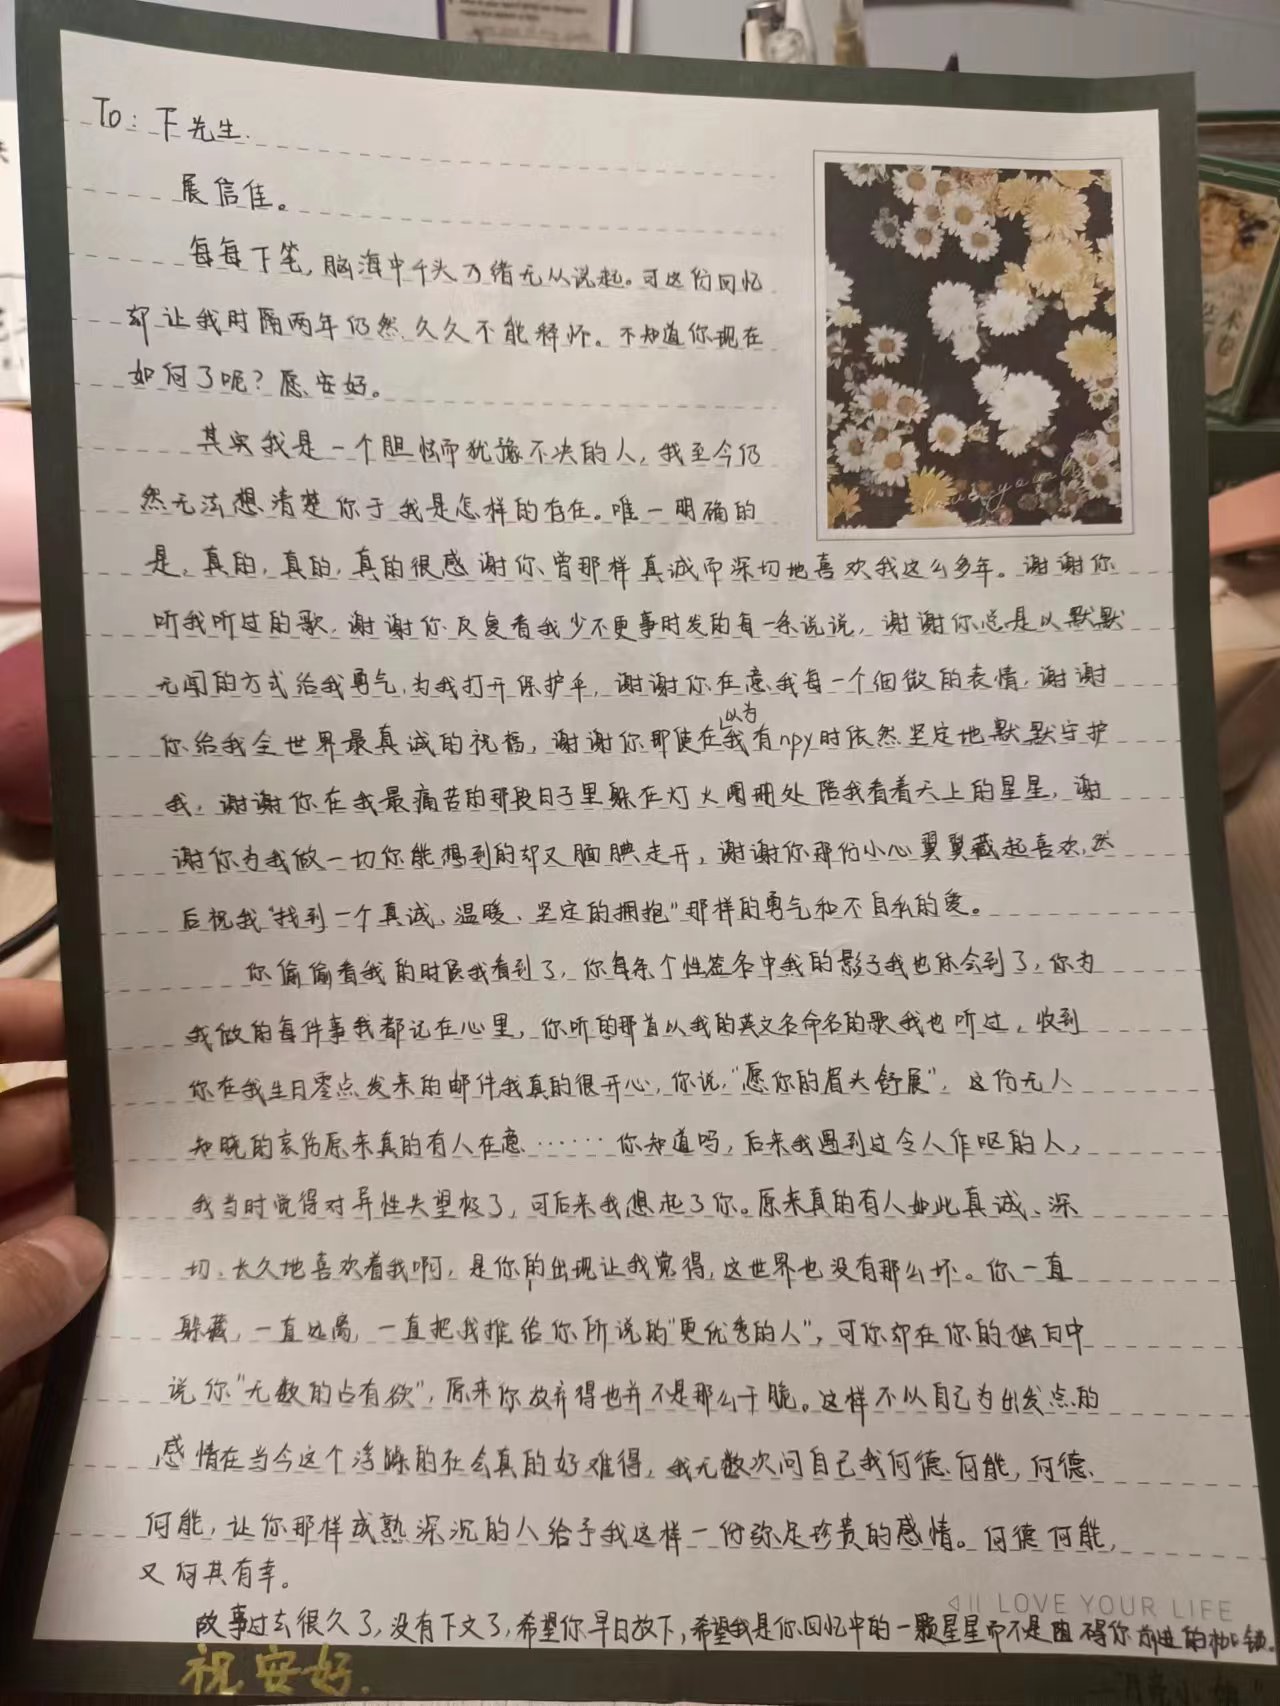 To: 下先生.
展信佳。
每每下笔,脑海中千头万绪无从说起。可这份回忆
却让我时隔两年仍然久久不能释怀。不知道你现在
如何了呢?愿安好。
其实我是一个胆怯而犹豫不决的人,我至今仍
然无法想清楚你于我是怎样的存在。唯一明确的
是,真的,真的,真的很感谢你曾那样真诚而深切地喜欢我这么多年。谢谢你
听我听过的歌,谢谢你反复看我少不更事时发的每一条说说,谢谢你总是以默默
无闻的方式给我勇气,为我打开保护伞,谢谢你在意我每一个细微的表情,谢谢
你给我全世界最真诚的祝福,谢谢你即使在以为我有npy时依然坚定地默默守护
我,谢谢你在我最痛苦的那段日子里躲在灯火阑珊处陪我看着天上的星星,谢
谢你为我做一切你能想到的却又腼腆走开,谢谢你那份小心翼翼藏起喜欢,然
后祝我"找到一个真诚、温暖、坚定的拥抱"那样的勇气和不自私的爱。
你偷偷看我的时候我看到了,你每条个性签名中我的影子我也体会到了,你为
我做的每件事我都记在心里,你听的那首以我的英文名命名的歌我也听过,收到
你在我生日零点发来的邮件我真的很开心,你说,"愿你的眉头舒展",这份无人
知晓的哀伤原来真的有人在意……你知道吗,后来我遇到过令人作呕的人,
我当时觉得对异性失望极了,可后来我想起了你。原来真的有人如此真诚、深
切、长久地喜欢着我啊,是你的出现让我觉得,这世界也没有那么坏。你一直
躲藏,一直远离,一直把我推给你所说的"更优秀的人",可你却在你的独白中
说你"无数的占有欲",原来你放弃得也并不是那么干脆。这样不以自己为出发点的
感情在当今这个浮躁的社会真的好难得,我无数次问自己我何德何能,何德
何能,让你那样成熟深沉的人给予我这样一份弥足珍贵的感情。何德何能,
又何其有幸。
故事过去很久了,没有下文了,希望你早日放下,希望我是你回忆中的一颗星星而不是困碍你前进的枷锁。
祝安好.
I LOVE YOUR LIFE